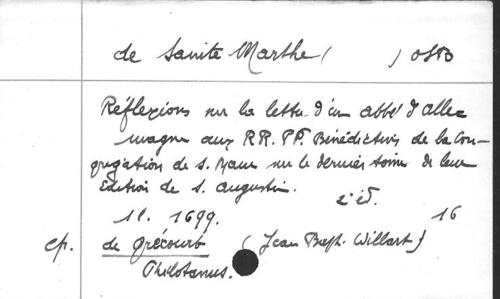 de Sainte Marthe ( ) OSB
Réflexions sur la lettre d'un abbé d'Alle=
magne aux RR. PP. Bénédictins de la Con-
grégation de S. Maur sur le dernier tome de leur
Edition de S. Augustin.
2e éd.
s.l. 1699. 16
cp. de Grécourt (Jean Bapt. Willart)
Philotanus.